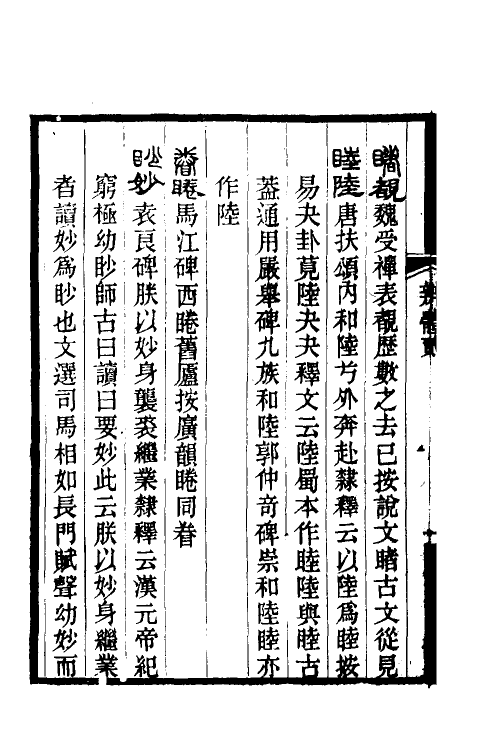 睹覩魏受禪表覩歷數之去已按說文睹古文從見
睦陸唐扶頌內和陸兮外奔赴隸釋云以陸爲睦按
易夬卦莧陸夬夬釋文云陸蜀本作睦陸與睦古
蓋通用嚴舉碑九族和陸郭仲奇碑崇和陸睦亦
作陸
眷睠馬江碑西睠舊廬按廣韻睠同眷
眇妙袁良碑朕以妙身襲裘繼業隸釋云漢元帝紀
窮極幼眇師古曰讀曰要妙此云朕以妙身繼業
者讀妙爲眇也文選司馬相如長門賦聲幼妙而